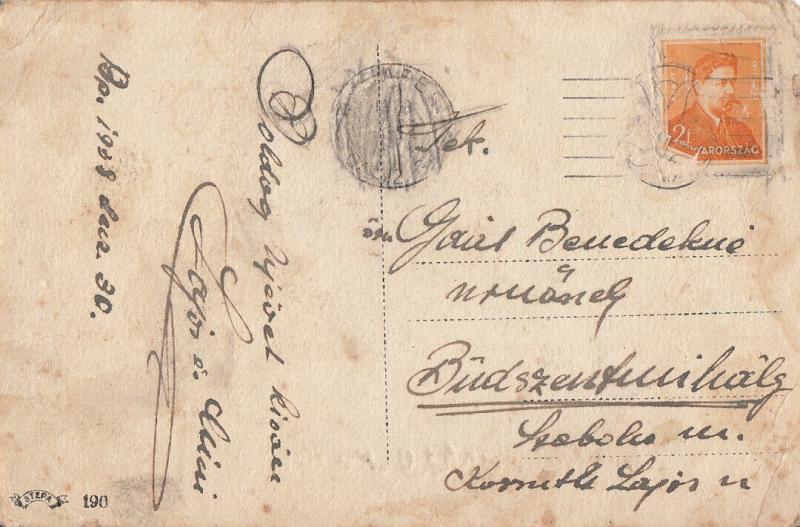 Bp. 1938 dec. 30.
Boldog Ujévet kíván
Lajos és Mici
Tek.
özv. Gaál Benedekné
urnőnek
Büdszentmihály
Szabolcs m.
Kossuth Lajos u
MAGYARORSZÁG
STEPA
190